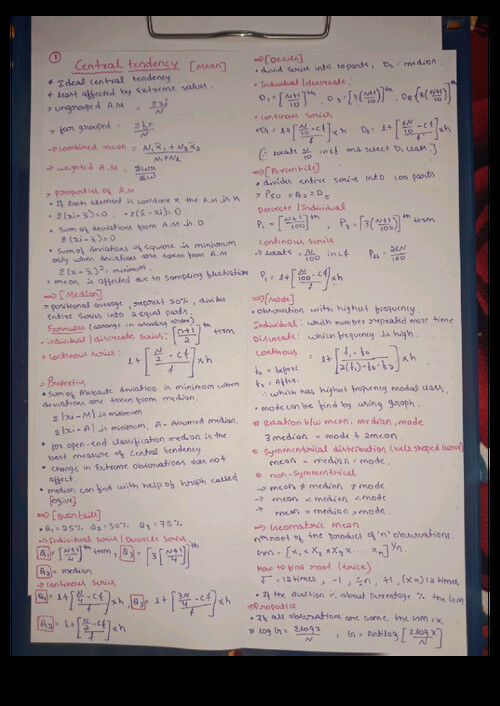 ①
Central tendency [Mean]
* Ideal central tendency
* least affected by Extreme values.
> ungrouped A.M = Σxi/N
> for grouped = Σfx/N
→ combined mean = N₁x̄₁ + N₂x̄₂ / N₁+N₂
→ weighted A.M = Σwx/Σw
> Properties of A.M
• If Each element is constant K the A.M is K
• Σ(xi-x̄)=0 . • Σ(x̄-xi)=0
• Sum of deviations from A.M is 0
Σ(xi-x̄)=0
• Sum of deviations of square is minimum
only when deviations are taken from A.M
Σ(x-x̄)² = minimum.
• mean is affected due to sampling fluctuation
⇒ [Median]
> positional average, 50%, divides
Entire series into 2 equal parts.
Formulas (arrange in order)
• individual / discrete series: [n+1/2]th term
• continous series:
l+[N/2 - cf / f]xh
> Properties
• Sum of Absolute deviation is minimum when
deviations are taken from median.
Σ|xi-M| is minimum
Σ|xi-A| is minimum, A- Assumed median.
• for open-end classification median is the
best measure of central tendency
• change in Extreme observations does not
affect.
• median can find with help of graph called
[ogive]
⇒ [Quartails]
• Q₁=25% Q₂=50% Q₃=75%
→ Individual series / Discrete series
Q₁ = [N+1/4]th term, Q₃ = [3[N+1/4]]th
Q₂ = median
→ continous series
Q₁ = l+[N/4 - cf / f]xh, Q₃ = l+[3N/4 - cf / f]xh
Q₂ = l+[N/2 - cf / f]xh
⇒ [Decile]
• divid series into 10 parts, D₅ = median.
• Individual / discreate:
D₁ = [N+1/10]th, D₃ = [3(N+1/10)]th, D₈ = [8(N+1/10)]th
• continous series
• D₁ = l+[N/10 - cf / f]xh D₆ = l+[6N/10 - cf / f]xh
(∵ locate N/10 in cf and select D₁ class.)
⇒ [Percentile]
• divides entire series into 100 parts
> P₅₀ = Q₂ = D₅
Discrete / Individual
P₁ = [N+1/100]th, P₃ = [3(N+1/100)]th term
Continous series
• locate N/100 in cf
P₁ = l+[N/100 - cf / f]xh
⇒ [Mode]
• observation with highest frequency.
Individual: which number repeated more time
Discreate: which frequency is high.
continous = l+[f₁-f₀ / 2(f₁)-f₀-f₂]xh
f₀ = before
f₂ = After.
∴ which has highest frequency modal class.
• mode can be find by using graph.
* Relation b/w mean, median, mode
3 median = mode + 2 mean.
* Symmentrical distribution (bell shaped curve)
mean = median = mode.
* non-symmentrical
→ mean ≠ median ≠ mode
→ mean < median < mode
→ mean > median > mode.
⇒ Geomatric mean.
nth root of the product of 'n' observations.
Gm = [x₁ × x₂ × x₃ x.... xn]1/n.
How to find root (trick)
√ = 12 times, -1, ÷n, +1, (x=) 12 times
• If the question is about percentage % the GM
> Propertice
• If all observations are same the GM is K
> log G = Σlogx/N , G = Antilog [Σlogx/N]